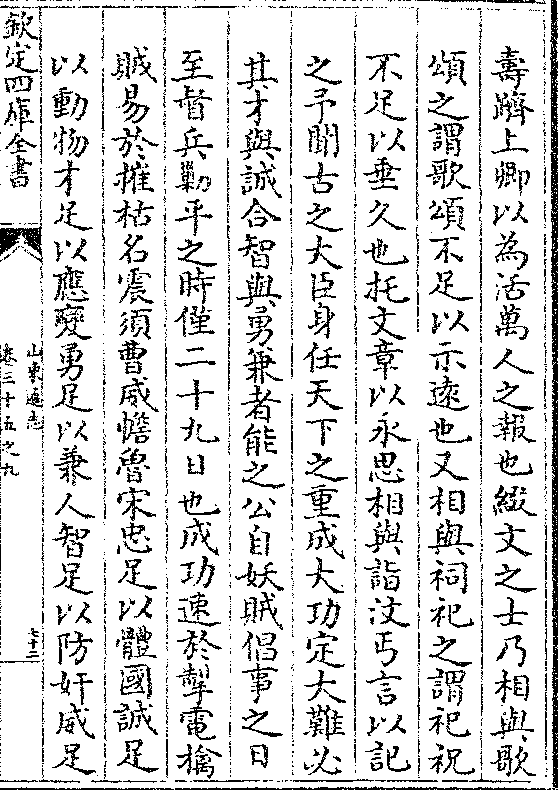 壽躋上卿以為活萬人之報也綴文之士乃相與歌
頌之謂歌頌不足以示遠也又相與祠祀之謂祀祝
不足以垂久也托文章以永思相與詣汶丐言以記
之予聞古之大臣身任天下之重成大功定大難必
其才與誠合智與勇兼者能之公自妖賊倡事之日
至督兵勦平之時僅二十九日也成功速於掣電擒
賊易於摧枯名震須曹威憺魯宋忠足以體國誠足
以動物才足以應變勇足以兼人智足以防奸威足
欽定四庫全書
山東通志
卷三十五之九
七十二